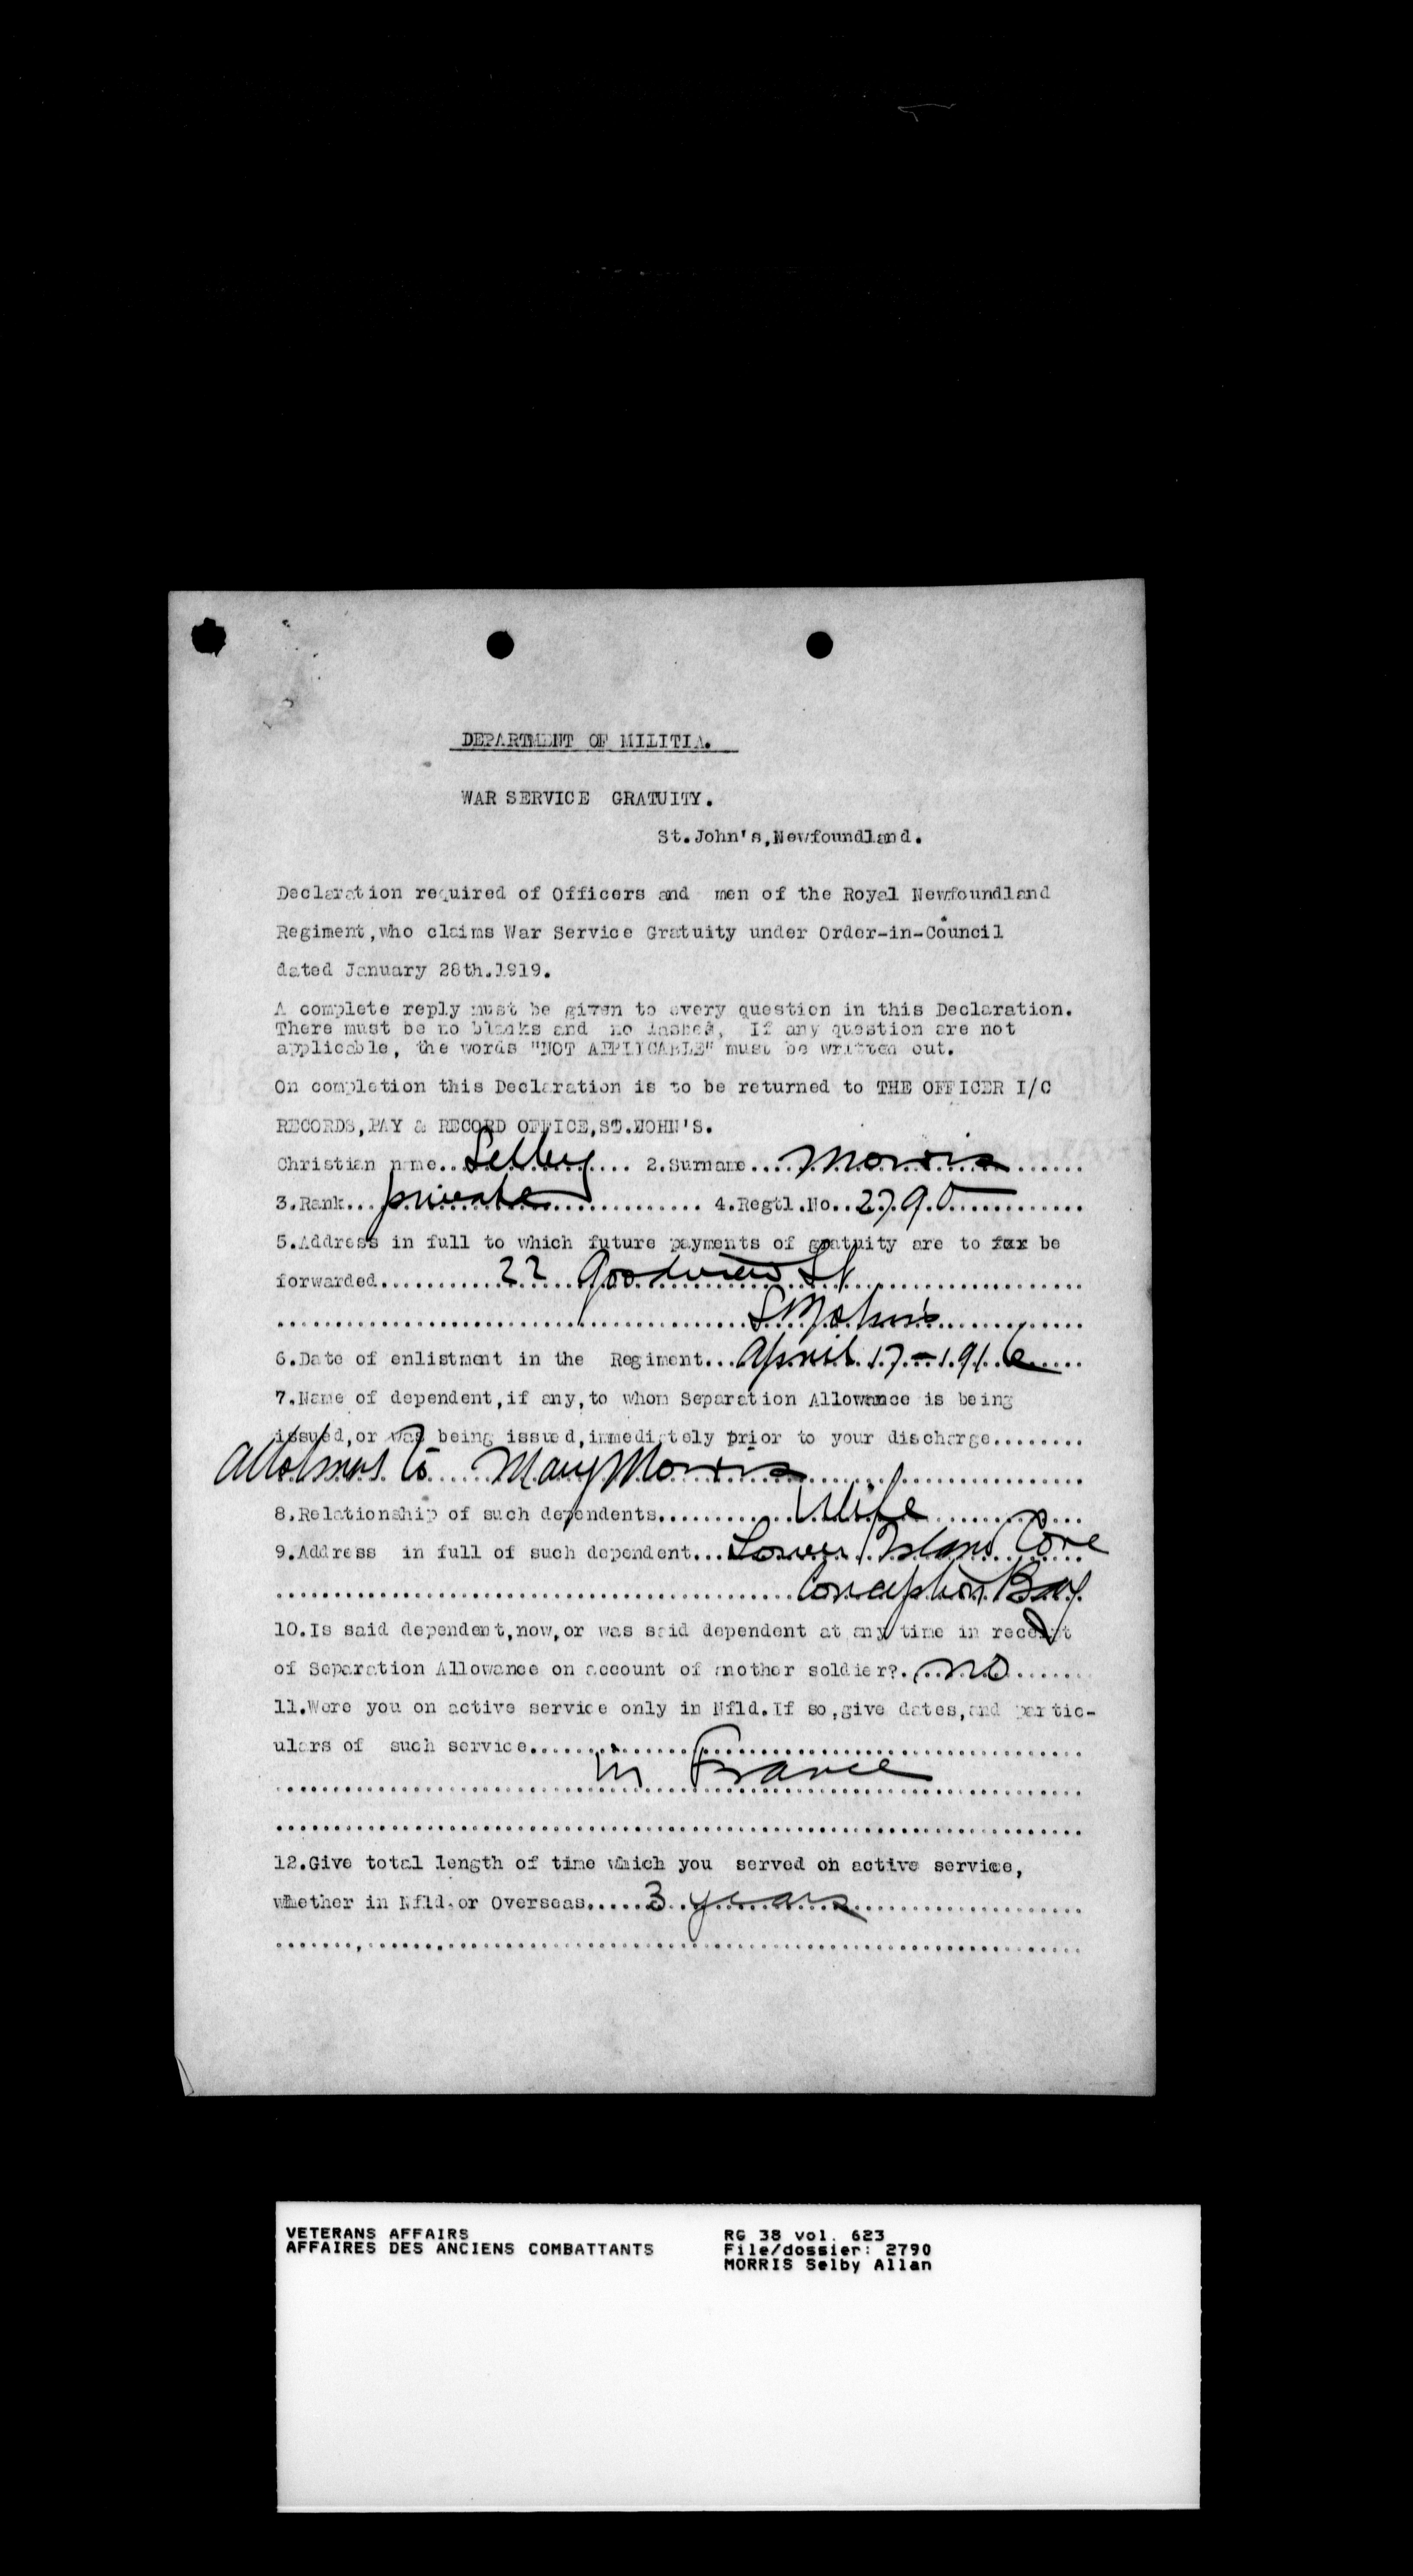 DEPARTMENT OF MILITIA.
WAR SERVICE GRATUITY.
St.John's,Newfoundland.
Declaration required of Officers and men of the Royal Newfoundland
Regiment,who claims War Service Gratuity under Order-in-Council
dated January 28th.1919.
A complete reply must be given to every question in this Declaration.
There must be no blanks and no dashes, If any question are not
applicable, the words "NOT APPLICABLE" must be written out.
On completion this Declaration is to be returned to THE OFFICER I/C
RECORDS,PAY & RECORD OFFICE,ST.JOHN'S.
Christian name..Selby.... 2.Surname...Morris......
3.Rank...private............ 4.Regtl.No..2790............
5.Address in full to which future payments of gratuity are to for be
forwarded..........22 Goodview St....................
........................................St John's............
6.Date of enlistment in the Regiment...April 17-1916.....
7.Name of dependent,if any,to whom Separation Allowance is being
issued,or was being issued,immediately prior to your discharge........
to.....Mary Morris........................
8.Relationship of such dependents............Wife............
9.Address in full of such dependent...Lower Island Cove
.............................................Conception Bay.
10.Is said dependent,now,or was said dependent at any time in receipt
of Separation Allowance on account of another soldier?...no......
11.Were you on active service only in Nfld.If so,give dates,and partic-
ulars of such service................................................
in France
......................................................................
12.Give total length of time which you served on active service,
whether in Nfld.or Overseas.....3 years...................
......................................................................
VETERANS AFFAIRS
AFFAIRES DES ANCIENS COMBATTANTS
RG 38 vol. 623
File/dossier: 2790
MORRIS Selby Allan